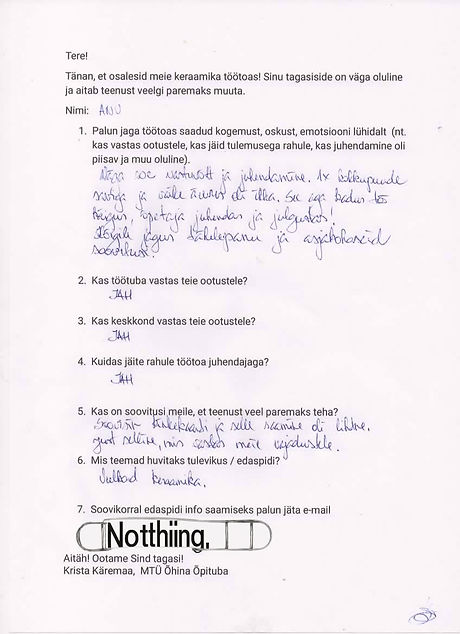 Tere!
Tänan, et osalesid meie keraamika töötoas! Sinu tagasiside on väga oluline
ja aitab teenust veelgi paremaks muuta.
Nimi: ANU
1. Palun jaga töötoas saadud kogemust, oskust, emotsiooni lühidalt (nt.
kas vastas ootustele, kas jäid tulemusega rahule, kas juhendamine oli
piisav ja muu oluline).
Väga soe vastuvõtt ja juhendamine. 1x kokkupuude
saviga ja väike ärevus oli ikka. See aga kadus
õpetaja juhendas ja julgustas!
Kõigile jagus tähelepanu ja asjakohaseid
soovitusi.
2. Kas töötuba vastas teie ootustele?
JAH
3. Kas keskkond vastas teie ootustele?
JAH
4. Kuidas jäite rahule töötoa juhendajaga?
JAH
5. Kas on soovitusi meile, et teenust veel paremaks teha?
Soovisin kinkekaarti ja selle saamine oli lihtne.
just selline, mis vastas meie vajadustele.
6. Mis teemad huvitaks tulevikus / edaspidi?
keraamika.
7. Soovikorral edaspidi info saamiseks palun jäta e-mail
Notthiing.
Aitäh! Ootame Sind tagasi!
Krista Käremaa, MTÜ Õhina Õpituba